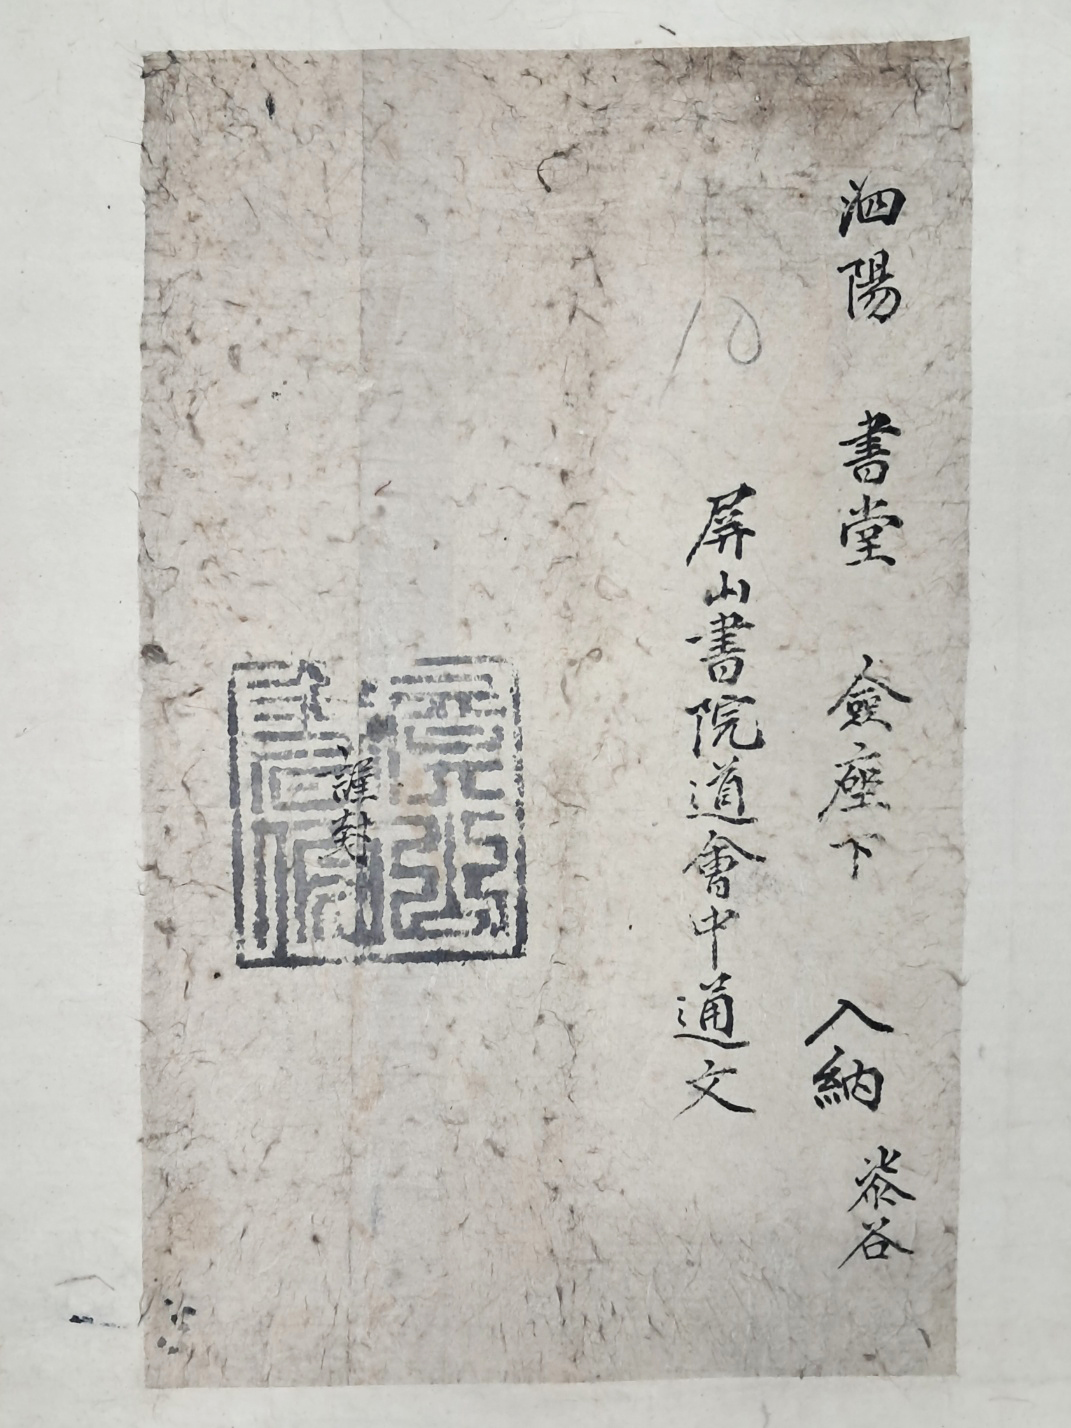 泗陽 書堂 僉座下 入納 柒谷
10
屏山書院道會中通文
謹封